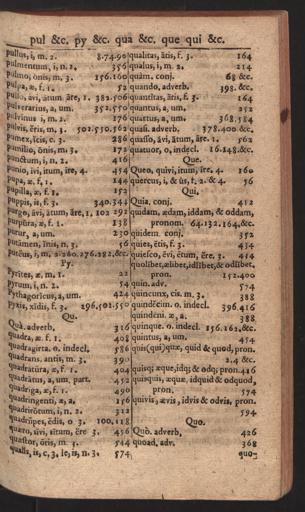 pul &c. py &c. qua &c. que qui &c.
pullus, i, m. 2. 8.74.90
pulmentum, i, n. 2. 356
pulmo, ônis, m. 3. 156.160
pulpa, æ, f. 1. 52
avi, âtum, âre, 1. 382.506
pulverarius, a, um. 352.550
pulvinus i, m. 2. 176
pulvis, ĕris, m. 3. 501.550.562
pumex, ĭcis, c. 3. 286
pumilio, ônis, m. 3. 172
punctum, i, n. 2. 416
punio, ivi, itum, ire, 4. 454
pupa, æ, f. 1. 144
pupilla, æ, f. 1. 152
puppis, is, f. 3. 340.344
purgo, âvi, âtum, âre, 1. 102 292
purpura, æ, f. 1. 138
purus, a, um. 230
putamen, ĭnis, n. 3. 56
puteus, i, m. 2. 260.276.282.&c.
Py.
Pyrites, æ, m. 1. 22
pyrum, i, n. 2. 54
Pythagoricus, a, um. 424
pyxis, xĭdis, f. 3. 296.501.550
Qu.
Quà. adverb. 316
quadra, æ. f. 1. 408
quadraginta. o. indecl. 586
quadrans. antis, m. 3. 590
quadratura, æ, f. 1. 404
quadrâtus, a, um, part. 452
quadriga, æ, f. 1. 490
quadringenti, æ, a. 156
quadrirôtum, i, n. 2. 312
quadrupes, ĕdis, o 3. 100.118
quæro, sivi, sîtum, ĕre 3. 456
quæstor, ôris, m. 3. 544
qualis, is, c, 3, le, is, n. 3. 574
qualitas, âtis, f. 3. 164
qualus, i, m. 2. 214
quàm. conj. 68 &c.
quando. adverb. 398. &c.
quantitas, âtis, f. 3. 164
quantus, a, um. 252
quartus, a, um. 368.584
quasi. adverb. 378.400 &c.
quasso, âvi, âtum, âre. 1. 562
quatuor, o, indecl. 16.148.&c.
Que.
Queo, quivi, itum, ire. 4. 160
quercus, i, & ûs, f. 2. & 4. 56
Qui.
Quia, conj. 412
quidam, ædam, iddam, & oddam,
pronom. 64.132.164,&c.
quidem. conj. 352
quies, êtis, f. 3. 454
quiesco, êvi, êtum, ĕre, 3. 454
quolibet, ælibet, idlibet, & odlibet,
pron. 152.400
quin. adv. 574
quincunx, cis. m. 3. 388
quindĕcim. o. indecl. 396.416
quindĕni. æ, a. 388
quinque. o. indecl. 156.162,&c.
quintus, a, um. 454
quis(qui) quæ, quid & quod, pron.
2.4 &c.
quisq; æque, idq; & odq; pron. 416
quisquis, æquæ, idquid & odquod,
pron. 574
quivis, ævis, idvis & odvis, pron.
594
Quo.
Quò. adverb, 426
quoad, adv. 368
quo-